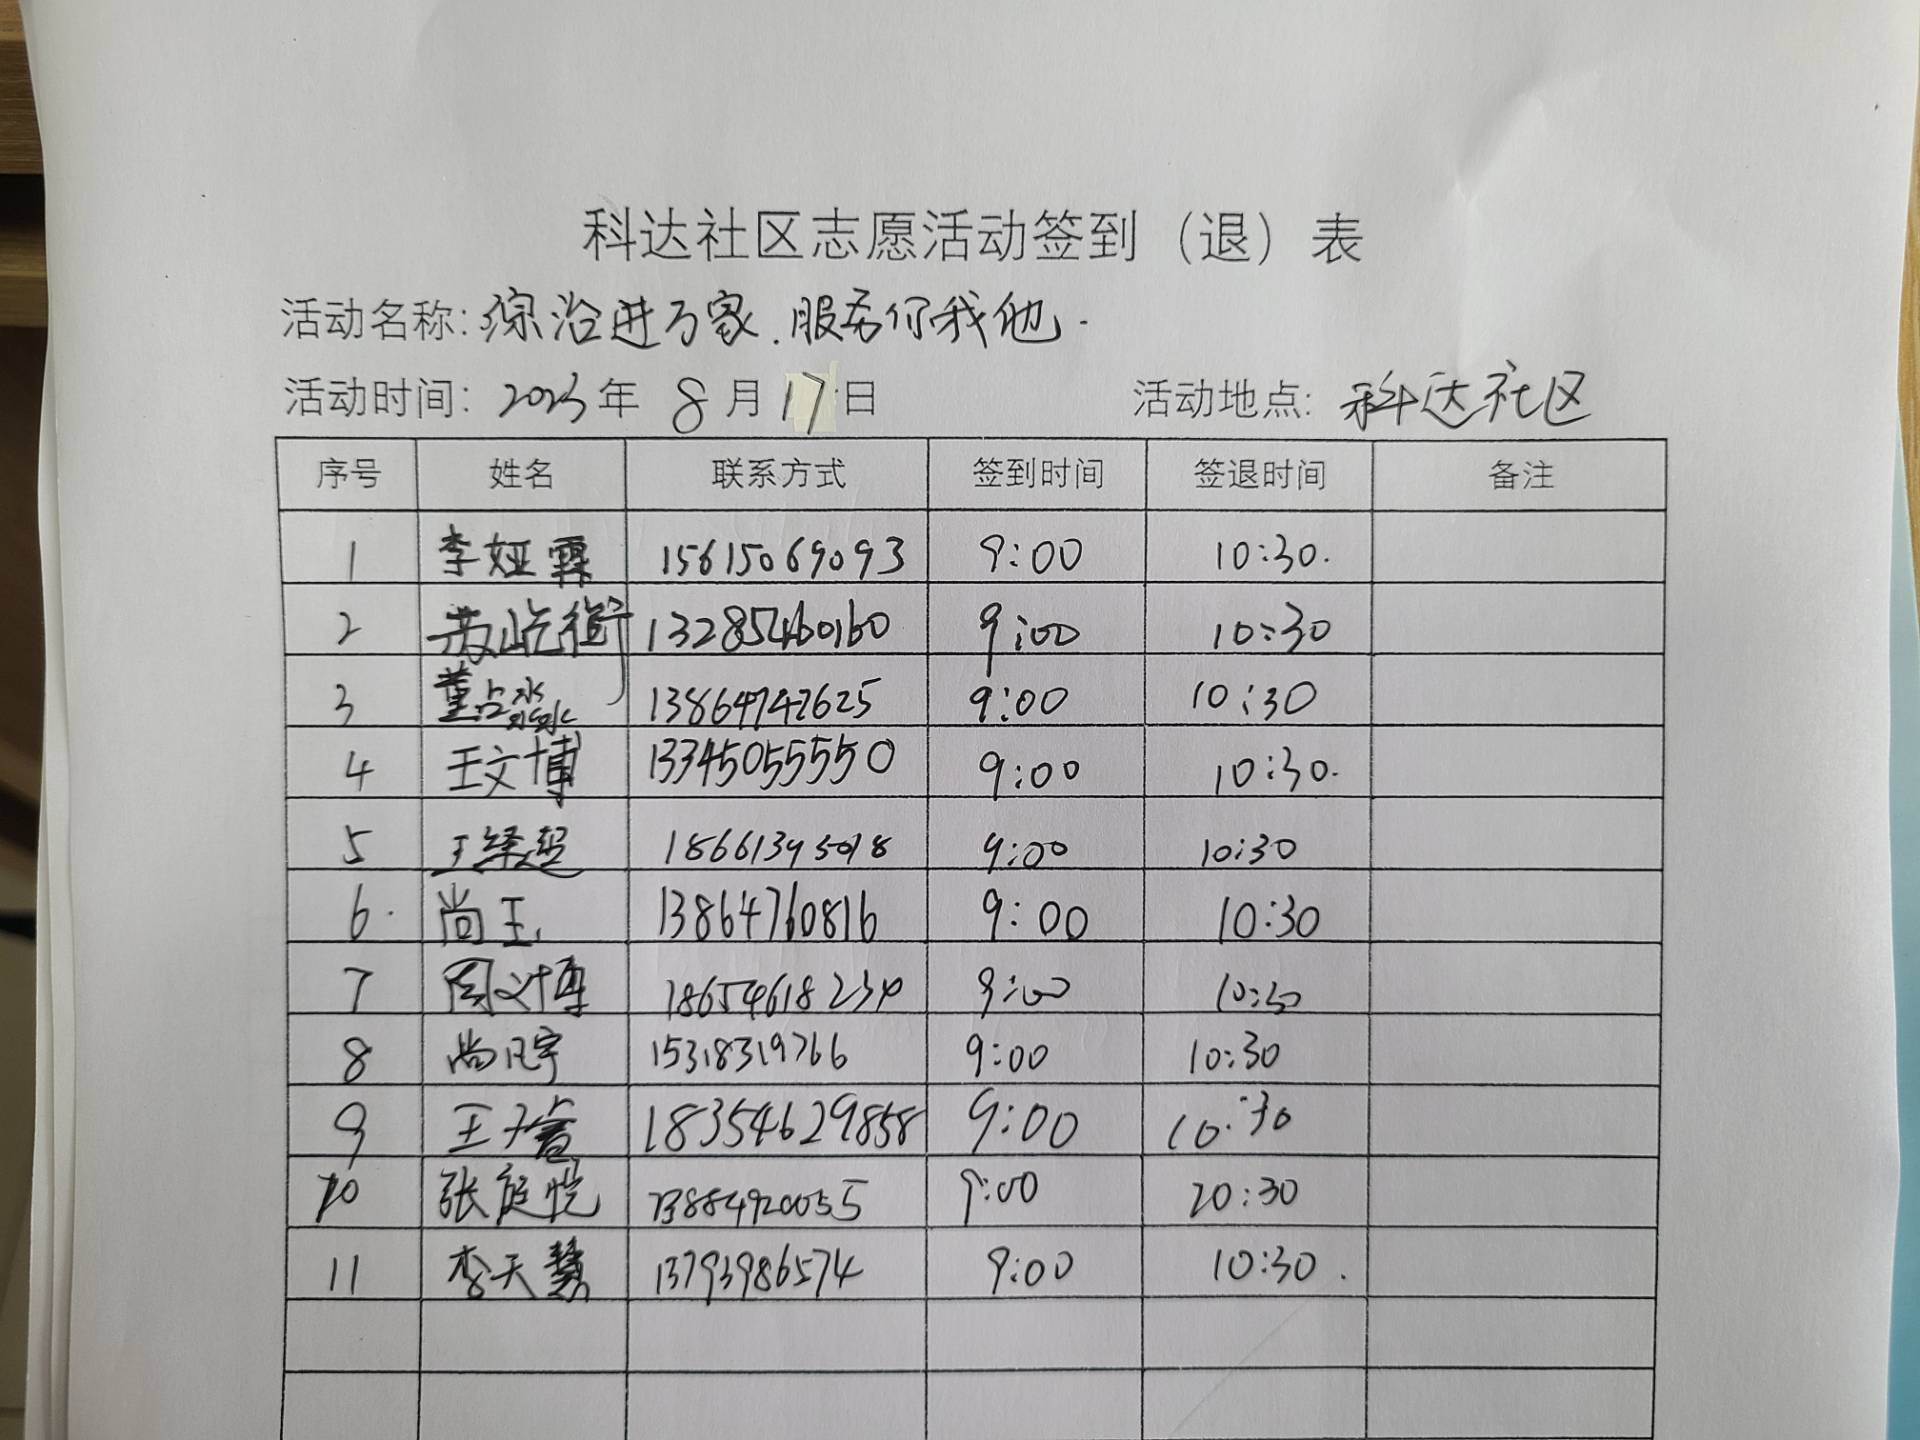 科达社区志愿活动签到（退）表
活动名称: 综治进万家.服务你我他.
活动时间: 2023年 8月17日 活动地点: 科达社区
序号 姓名 联系方式 签到时间 签退时间 备注
1 李娅霖 15615069093 9:00 10:30.
2 13285460160 9:00 10:30
3 董占淼 13864742625 9:00 10:30
4 王文博 13345055550 9:00 10:30.
5 9:00 10:30
6. 尚玉 13864760816 9:00 10:30
7 周文博 18654618234 9:00 10:30
8 尚凡宇 15318319766 9:00 10:30
9 王子睿 18354629858 9:00 10:30
10 张庭悦 13884920055 9:00 20:30
11 李天慧 13793986574 9:00 10:30.